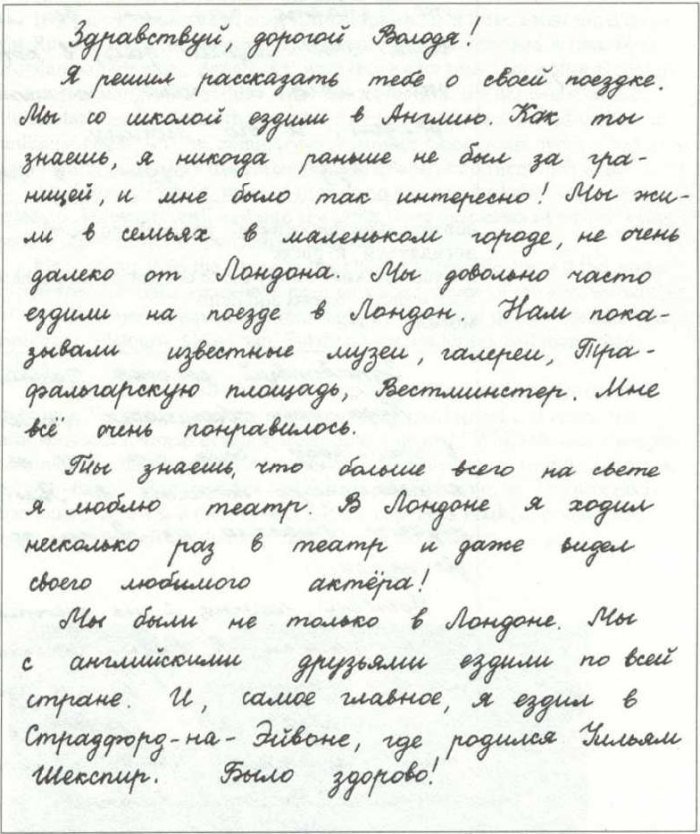 Здравствуй, дорогой Володя!
Я решил рассказать тебе о своей поездке.
Мы со школой ездили в Англию. Как ты
знаешь, я никогда раньше не был за гра-
ницей, и мне было так интересно! Мы жи-
ли в семьях в маленьком городе, не очень
далеко от Лондона. Мы довольно часто
ездили на поезде в Лондон. Нам пока-
зывали известные музеи, галереи, Тра-
фальгарскую площадь, Вестминстер. Мне
всё очень понравилось.
Ты знаешь, что больше всего на свете
я люблю театр. В Лондоне я ходил
несколько раз в театр и даже видел
своего любимого актёра!
Мы были не только в Лондоне. Мы
с английскими друзьями ездили по всей
стране. И, самое главное, я ездил в
Страдфорд-на-Эйвоне, где родился Уильям
Шекспир. Было здорово!